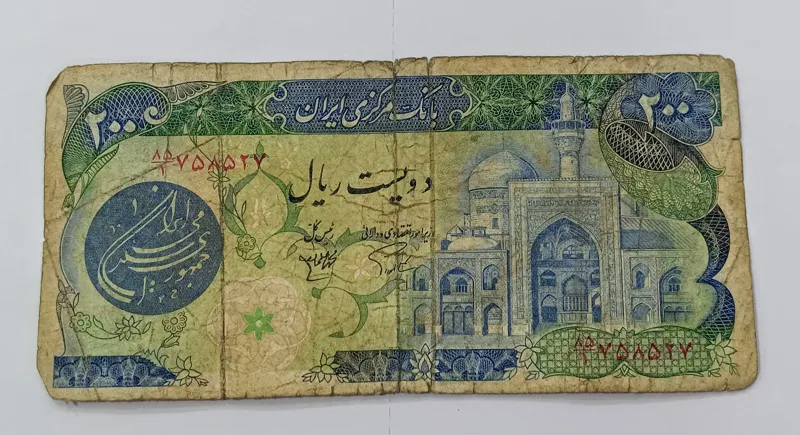 بانک مرکزی ایران
۲۰۰
۲۰۰
۸۵/۱ ۷۵۸۵۲۷
دویست ریال
جمهوری اسلامی ایران
وزیر امور اقتصادی و دارائی
رئیس کل
۸۵/۱ ۷۵۸۵۲۷